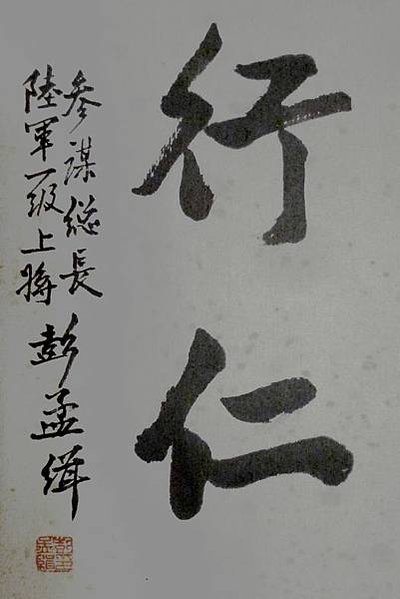 行仁
參謀總長
陸軍一級上將
彭孟緝